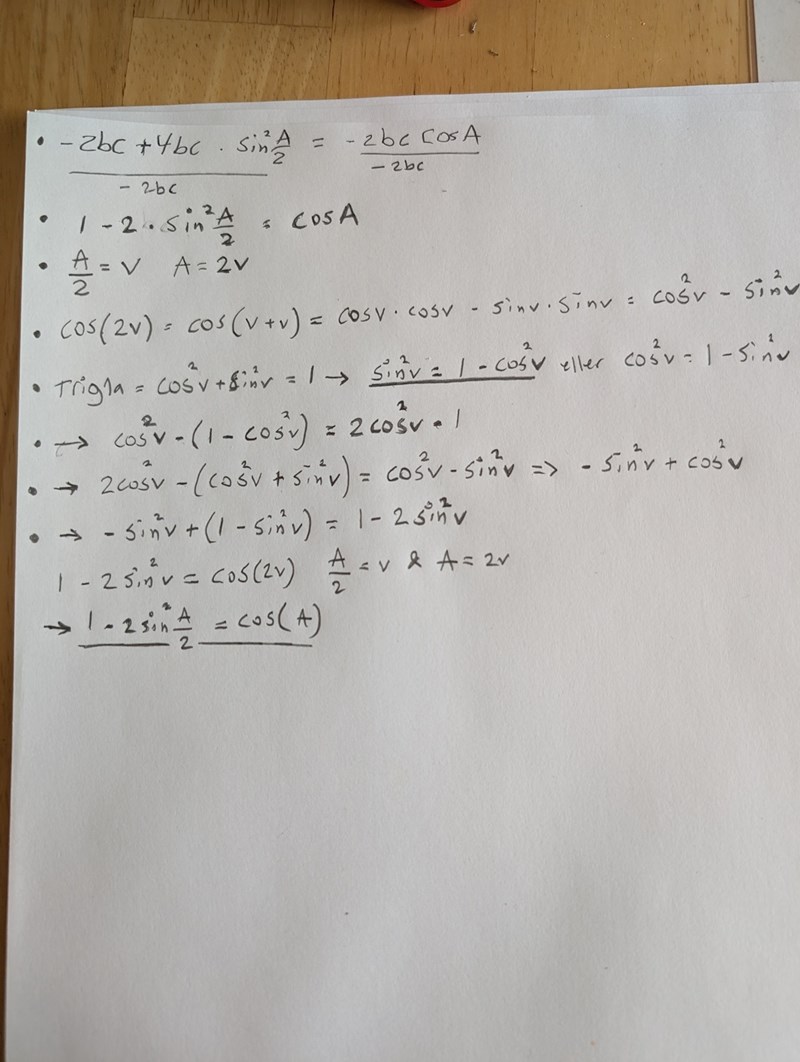 • (-2bc + 4bc · sin² A/2)/(-2bc) = (-2bc cos A)/(-2bc)
• 1 - 2 · sin² A/2 = cos A
• A/2 = v A = 2v
• cos(2v) = cos(v+v) = cosv · cosv - sinv · sinv = cos²v - sin²v
• Trig1a = cos²v + sin²v = 1 → sin²v = 1 - cos²v eller cos²v = 1 - sin²v
• → cos²v - (1 - cos²v) = 2cos²v - 1
• → 2cos²v - (cos²v + sin²v) = cos²v - sin²v => - sin²v + cos²v
• → - sin²v + (1 - sin²v) = 1 - 2 sin²v
1 - 2 sin²v = cos(2v) A/2 = v & A = 2v
→ 1 - 2 sin² A/2 = cos(A)